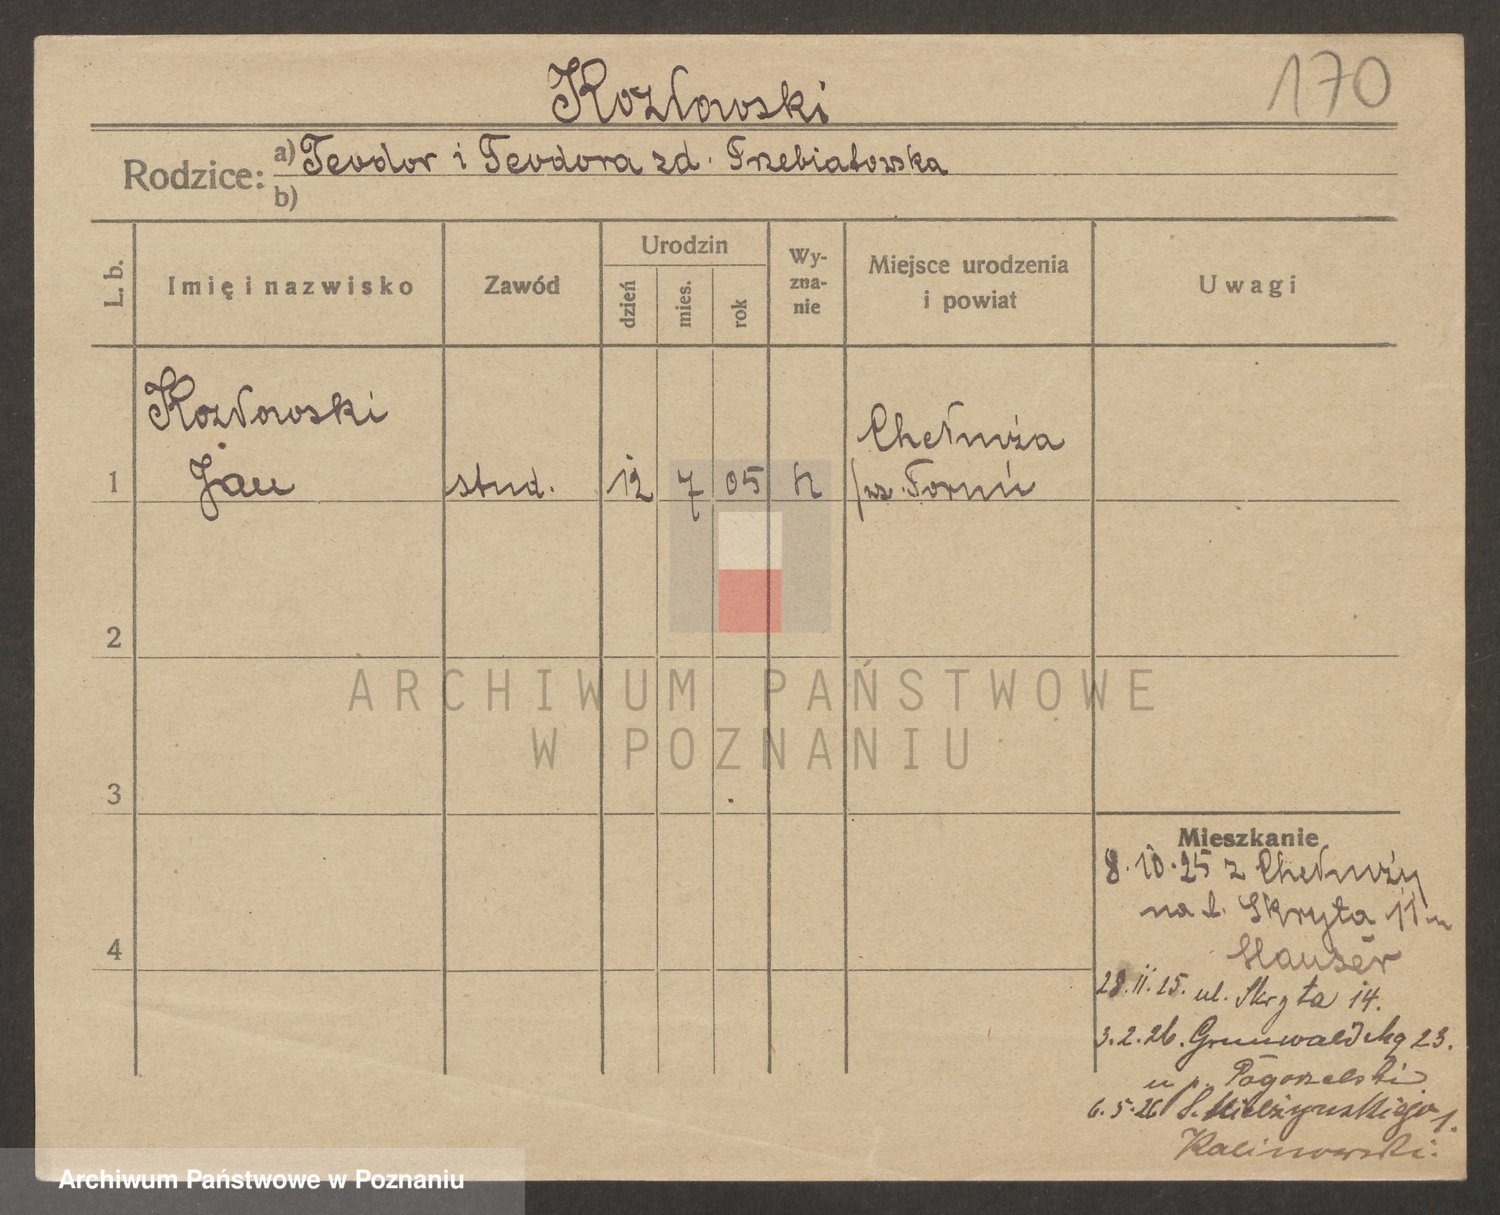 Kozłowski
170
Rodzice: a) Teodor i Teodora zd. Trzebiatowska
b)
L. b.
Imię i nazwisko
Zawód
Urodzin
dzień
mies.
rok
Wy-
zna-
nie
Miejsce urodzenia
i powiat
Uwagi
Kozłowski
Chełmża
1 Jan stud. 12 7 05 k pow. Toruń
2
ARCHIWUM PAŃSTWOWE
W POZNANIU
3
Mieszkanie
8.10.25 z Chełmży
na ul. Skryta 11 u
Hauser
4
28.11.25. ul. Skryta 14.
3.2.26. Grunwaldzka 23.
u p. Pogorzelski
6.5.26 S. Mielżyńskiego 1.
Kalinowski.
Archiwum Państwowe w Poznaniu